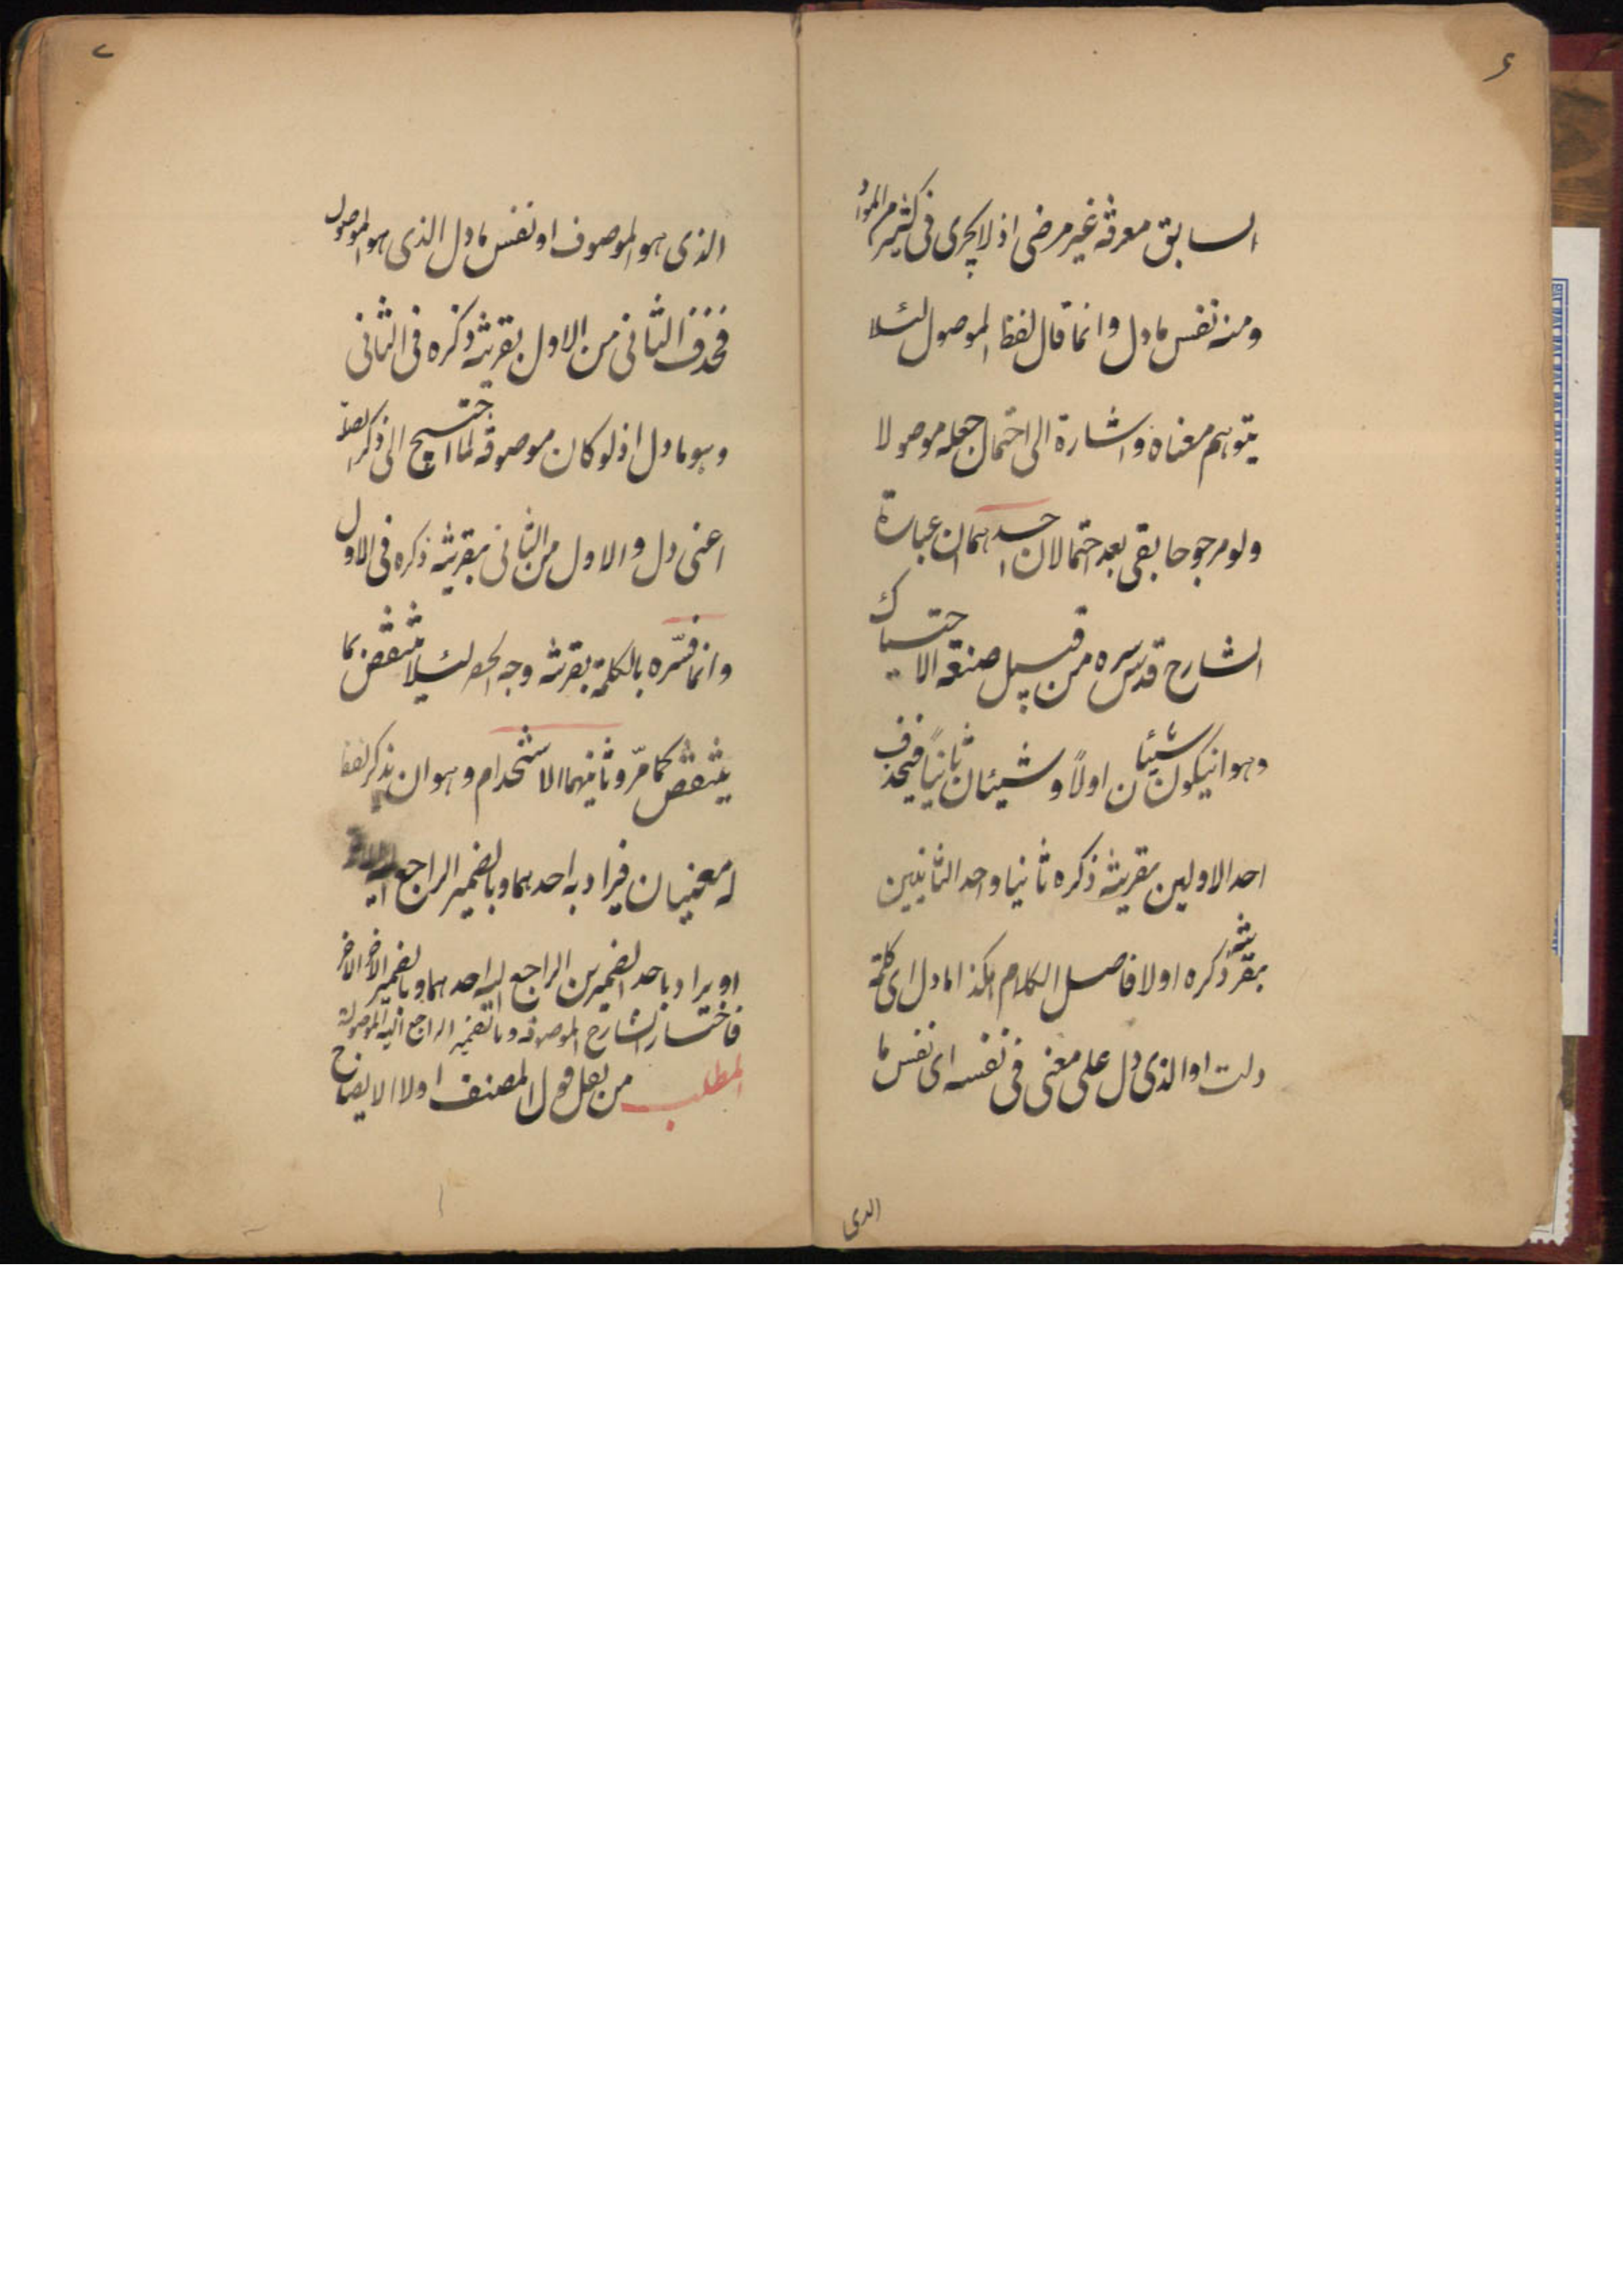 ٤
السابق معرفة غير مرضى اذ لا يجرى فى كثير من المواد
ومنه نفس مادل وانما قال لفظ الموصول لئلا
يتوهم معناه واشارة الى احتمال جعله موصولا
ولو مرجوحا بقى بعد احتمالان احدهما ان عبارة
الشارح قدس سره من قبيل صنعة الاحتباك
وهو انيكون شيئان اولاً وشيئان ثانياً فيحذف
احد الاولين بقرينة ذكره ثانيا واحد الثانيين
بقرينة ذكره اولا فاصل الكلام هكذا مادل اى كلمة
دلت او الذى دل على معنى فى نفسه اى نفس ما
الذى
الذى هو الموصوف او نفس مادل الذى هو الموصول
فحذف الثانى من الاول بقرينة ذكره فى الثانى
وهو مادل اذ لو كان موصوفة لما احتيج الى ذكر الصلة
اعنى دل والاول من الثانى بقرينة ذكره فى الاول
وانما فسّره بالكلمة بقرينة وجه الحصر لئيلا ينتقض بما
ينتقض كما مرّ وثانيهما الاستخدام وهو ان يذكر لفظ
له معنيان فيراد به احدهما وبالضمير الراجع اليه
او يراد باحد الضميرين الراجع اليه احدهما وبالضمير الاخر الاخر
فاختار الشارح الموصوفة وبالضمير الراجع اليه الموصولة
المطلب من قول المصنف اولا الايضاح